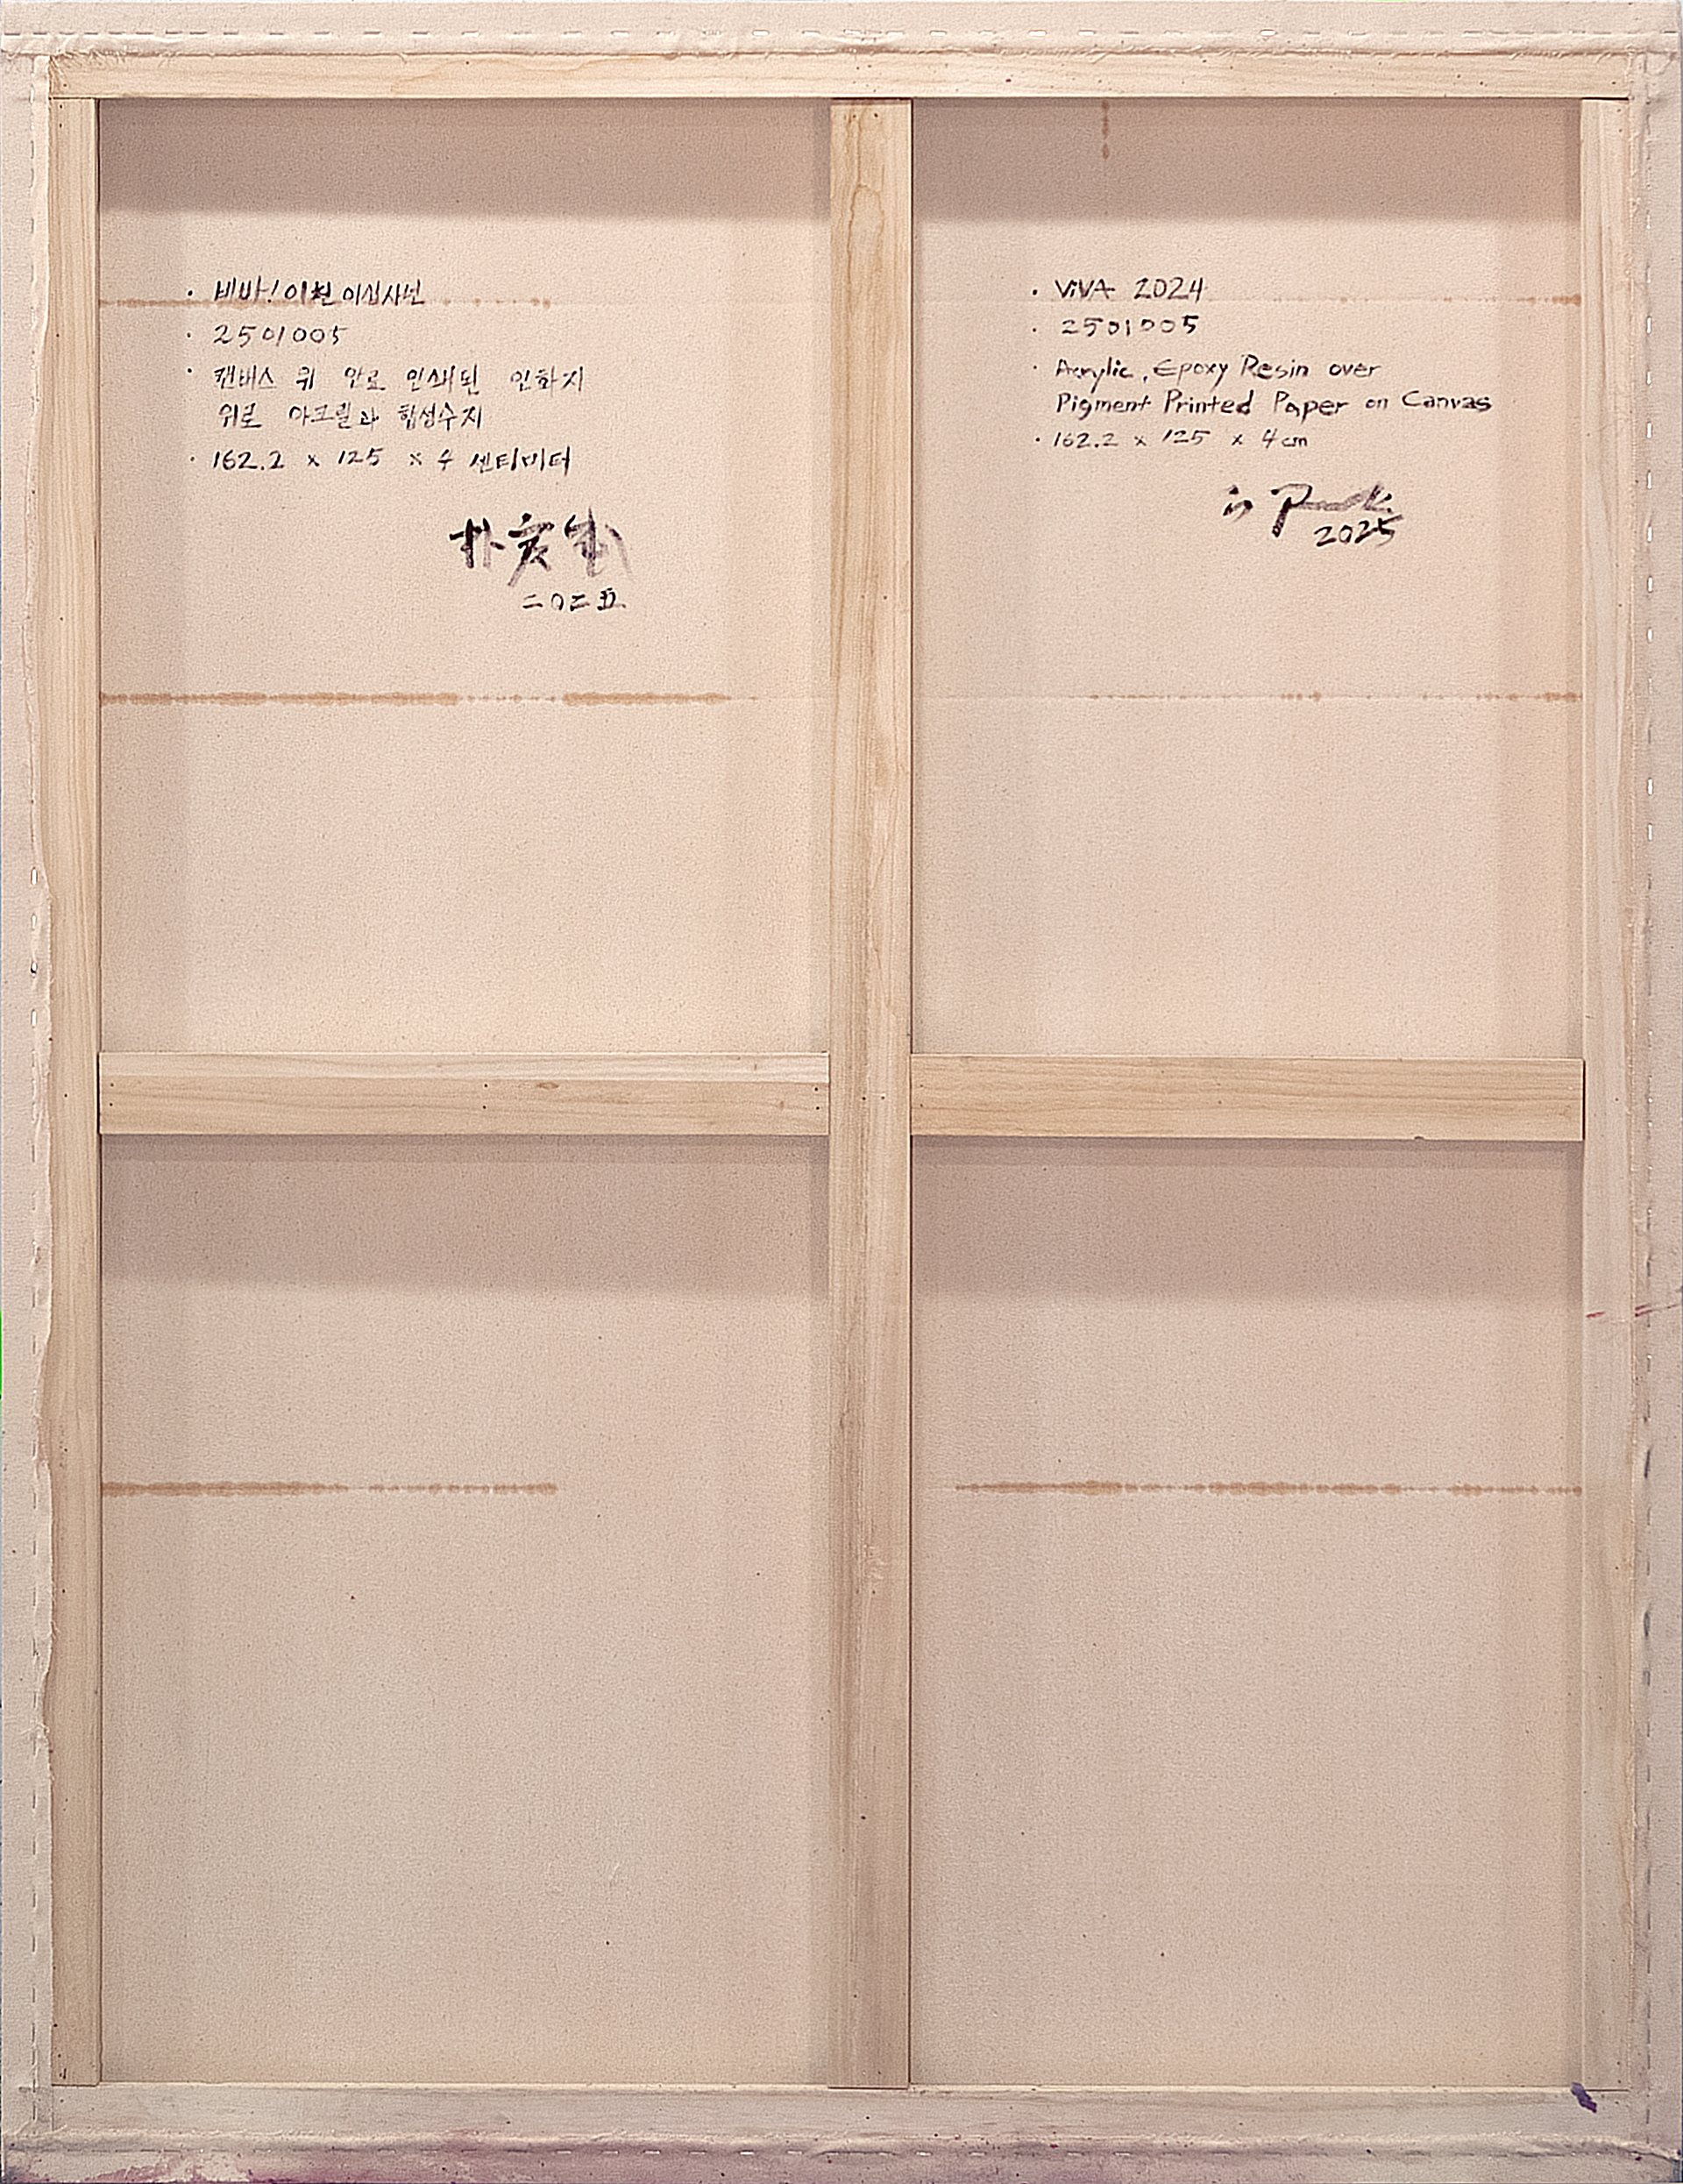 · 비바! 이천 이십사년
· 2501005
· 캔버스 위 안료 인쇄된 인화지
위로 아크릴과 합성수지
· 162.2 x 125 x 4 센티미터
朴亥
二〇二五
· ViVA 2024
· 2501005
· Acrylic, Epoxy Resin over
Pigment Printed Paper on Canvas
· 162.2 x 125 x 4 cm
2025